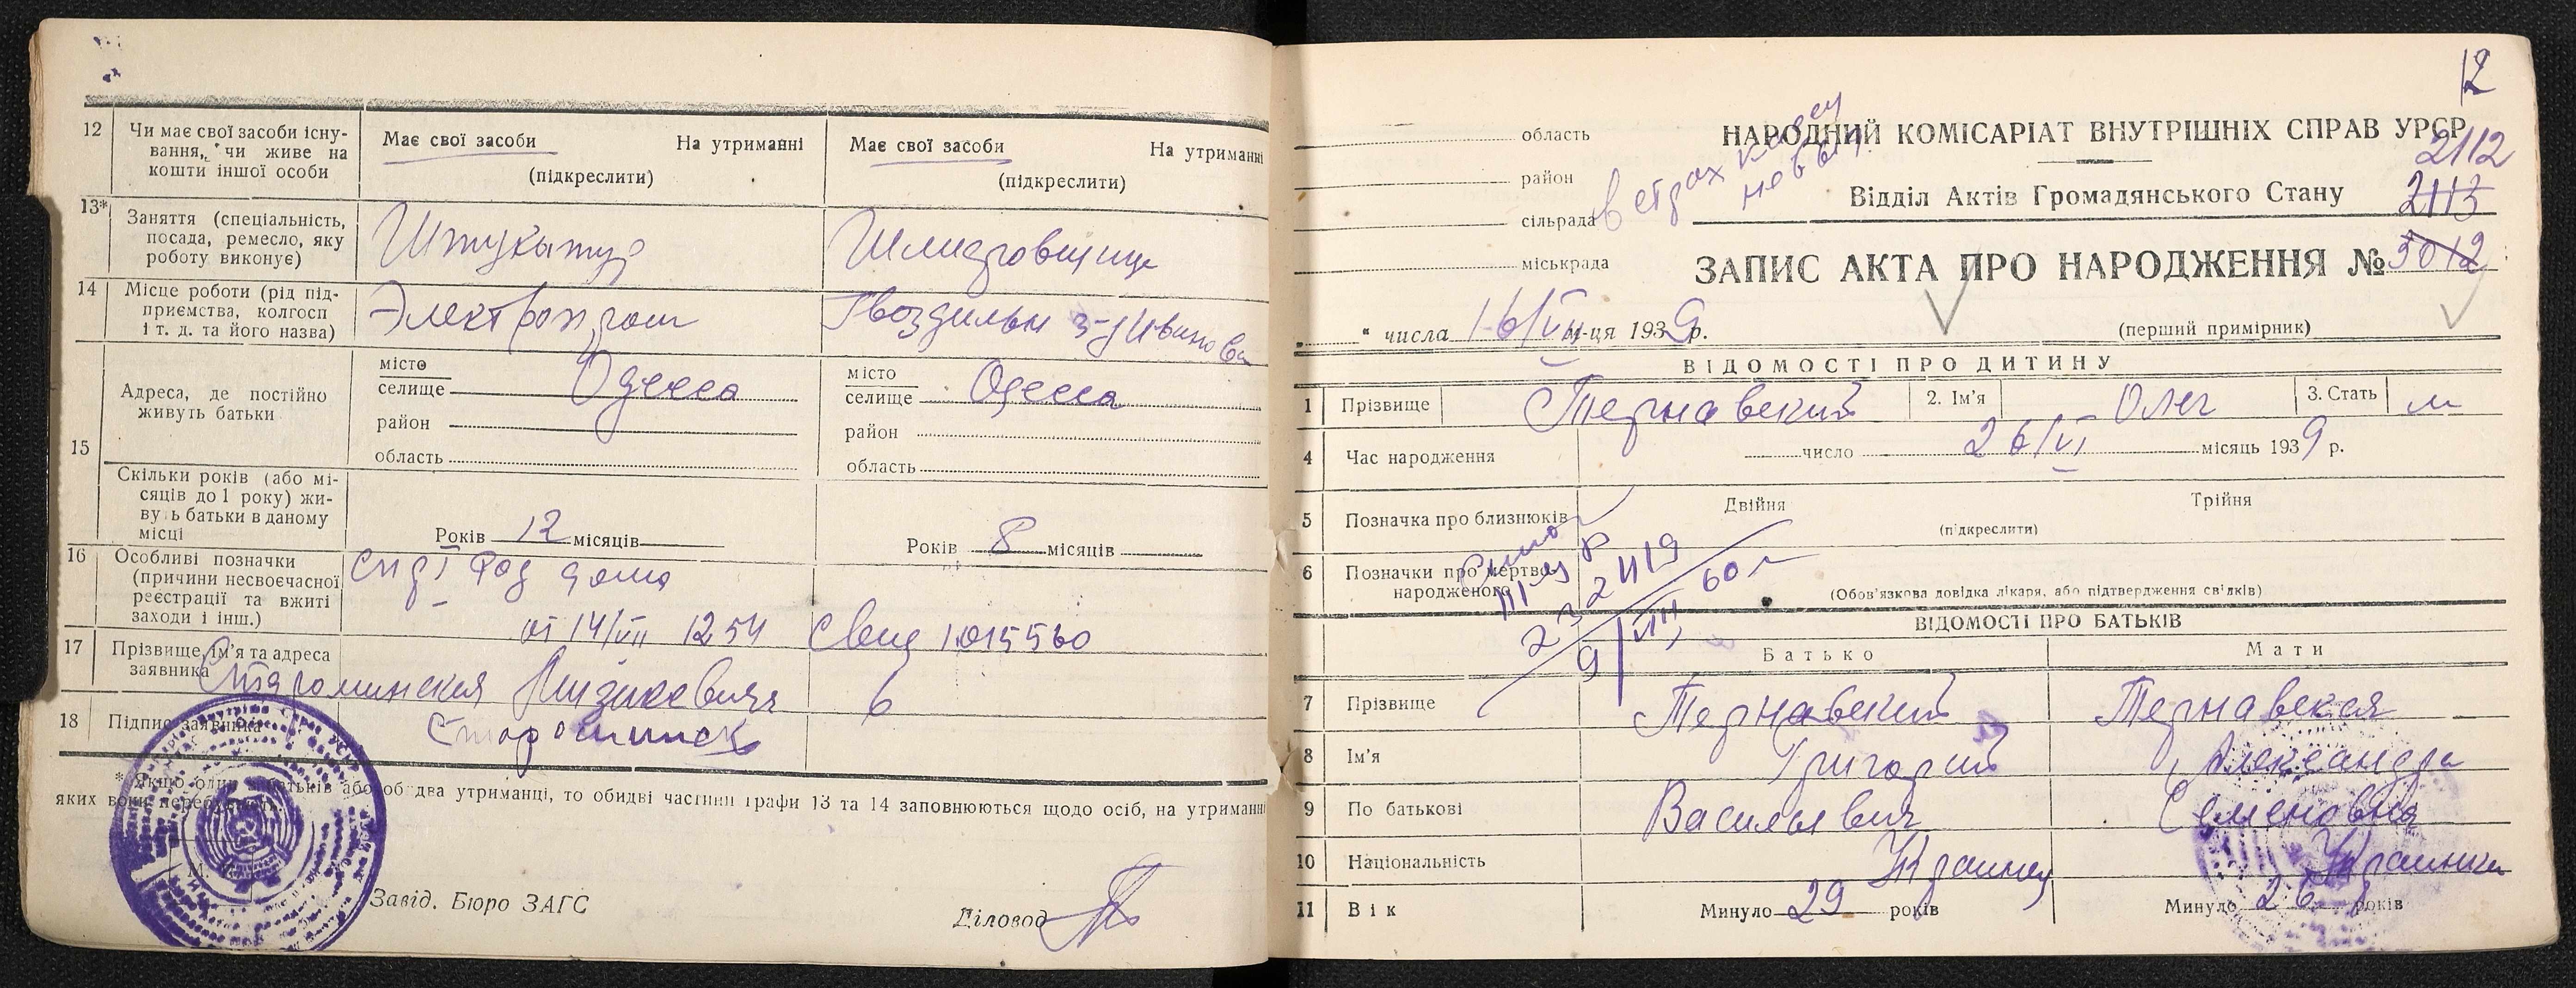 12
Чи має свої засоби існу-
вання, чи живе на
кошти іншої особи
Має свої засоби
На утриманні
(підкреслити)
Має свої засоби
На утриманні
(підкреслити)
13*
Заняття (спеціальність,
посада, ремесло, яку
роботу виконує)
Штукатур
14
Місце роботи (рід під-
приємства, колгосп
і т. д. та його назва)
15
Адреса, де постійно
живуть батьки
місто
селище
Одесса
район
область
місто
селище
Одесса
район
область
Скільки років (або мі-
сяців до 1 року) жи-
вуть батьки в даному
місці
Років 12 місяців
Років 8 місяців
16
Особливі позначки
(причини несвоєчасної
реєстрації та вжиті
заходи і інш.)
от 14/VII 1254
17
Прізвище, ім'я та адреса
заявника
6
18
Підпис заявника
* Якщо один з батьків або обидва утриманці, то обидві частини графи 13 та 14 заповнюються щодо осіб, на утриманні
яких вони перебувають.
Завід. Бюро ЗАГС
Діловод
12
область
район
сільрада
міськрада
НАРОДНИЙ КОМІСАРІАТ ВНУТРІШНІХ СПРАВ УРСР
2112
Відділ Актів Громадянського Стану
2113
ЗАПИС АКТА ПРО НАРОДЖЕННЯ № 5012
" числа 16/VII м-ця 1939 р.
(перший примірник)
ВІДОМОСТІ ПРО ДИТИНУ
1
Прізвище
Тернавский
2. Ім'я
Олег
3. Стать
м
4
Час народження
число 26/VI місяць 1939 р.
5
Позначка про близнюків
Двійня
Трійня
(підкреслити)
6
Позначки про мертво-
народженого
(Обов'язкова довідка лікаря, або підтвердження свідків)
ВІДОМОСТІ ПРО БАТЬКІВ
Батько
Мати
7
Прізвище
Тернавский
Тернавская
8
Ім'я
Григорий
Александра
9
По батькові
Васильевич
Семеновна
10
Національність
Украинец
Украинка
11
Вік
Минуло 29 років
Минуло 26 років